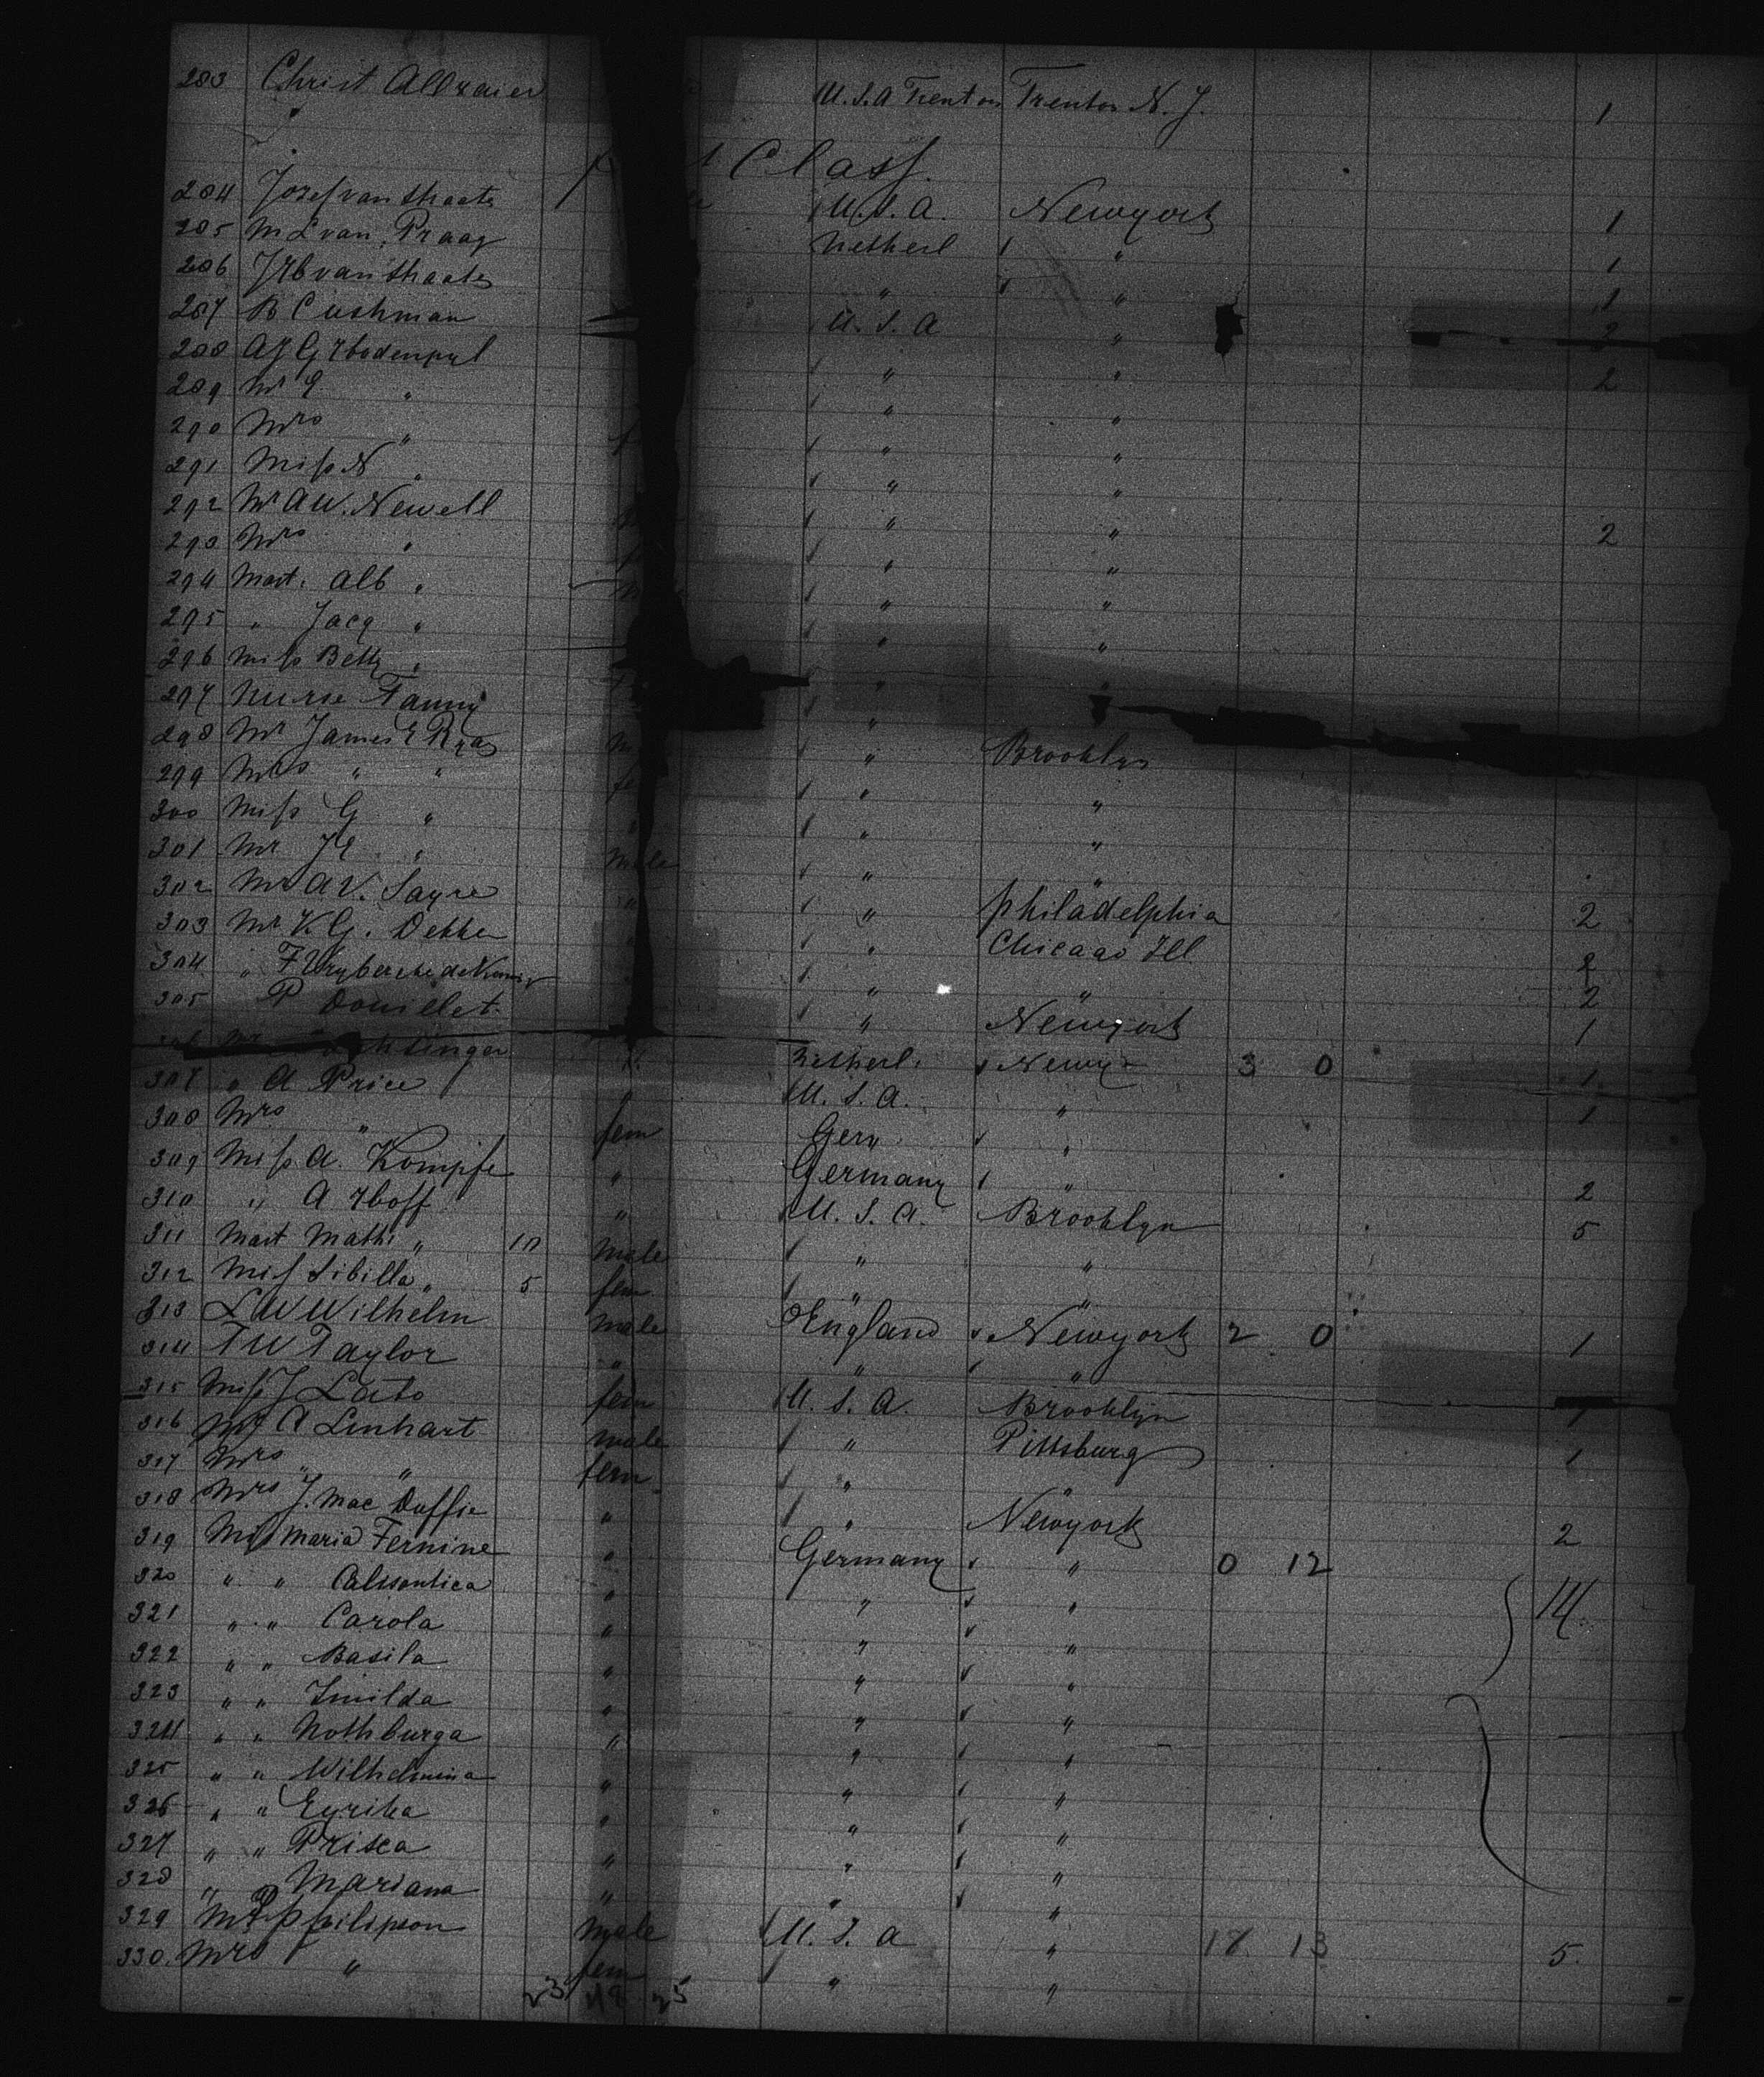 283 Christ Allraier U.S.A Trenton Trenton N.J. 1
Class.
284 Josef van Straate U.S.A. Newyork 1
285 M L van Praag Netherl " 1
286 van Straate " " 1
287 B Cushman U.S.A " 2
288 A J G Hodenpyl " " 2
289 Mr E " " "
290 Mrs " " "
291 Miss N " " "
292 Mr A W. Newell " " 2
293 Mrs " " "
294 Mast. Alb " " "
295 " Jacq " " "
296 Miss Betty " " "
297 Nurse Fanny "
298 Mr James E M " Brooklyn
299 Mrs " " fe " "
300 Miss G " " "
301 Mr J E " male " "
302 Mr A V. Sayre " " Philadelphia 2
303 Mr K. G. Dekker " Chicago Ill 2
304 " F " " 2
305 P Douillet " Newyork 1
Mr Netherl. Newy 3 0 1
307 " A Price " U.S.A. " 1
308 Mrs " fem Ger "
309 Miss A. Kompfe " Germany " 2
310 " A Hoff " U.S.A. Brooklyn 5
311 Mast Math " 10 male " "
312 Miss Sibilla " 5 fem " "
313 L W Wilhelm male England Newyork 2 0 1
314 T W Taylor " " "
315 Miss J Lato fem U.S.A. Brooklyn 1
316 Mr A Linhart male " Pittsburg 1
317 Mrs " " fem. " "
318 Mrs J. Mac Duffie " " Newyork 2
319 Miss Maria Fernine " Germany " 0 12
320 " " " " " 14.
321 " " Carola " " "
322 " " Basila " " "
323 " " Imilda " " "
324 " " Nothburga " " "
325 " " Wilhelmina " " "
326 " " Eyrika " " "
327 " " Prisca " " "
328 " " Mariana " " "
329 Mr P Philipson male U.S.A " 18 13 5.
330. Mrs " fem " "